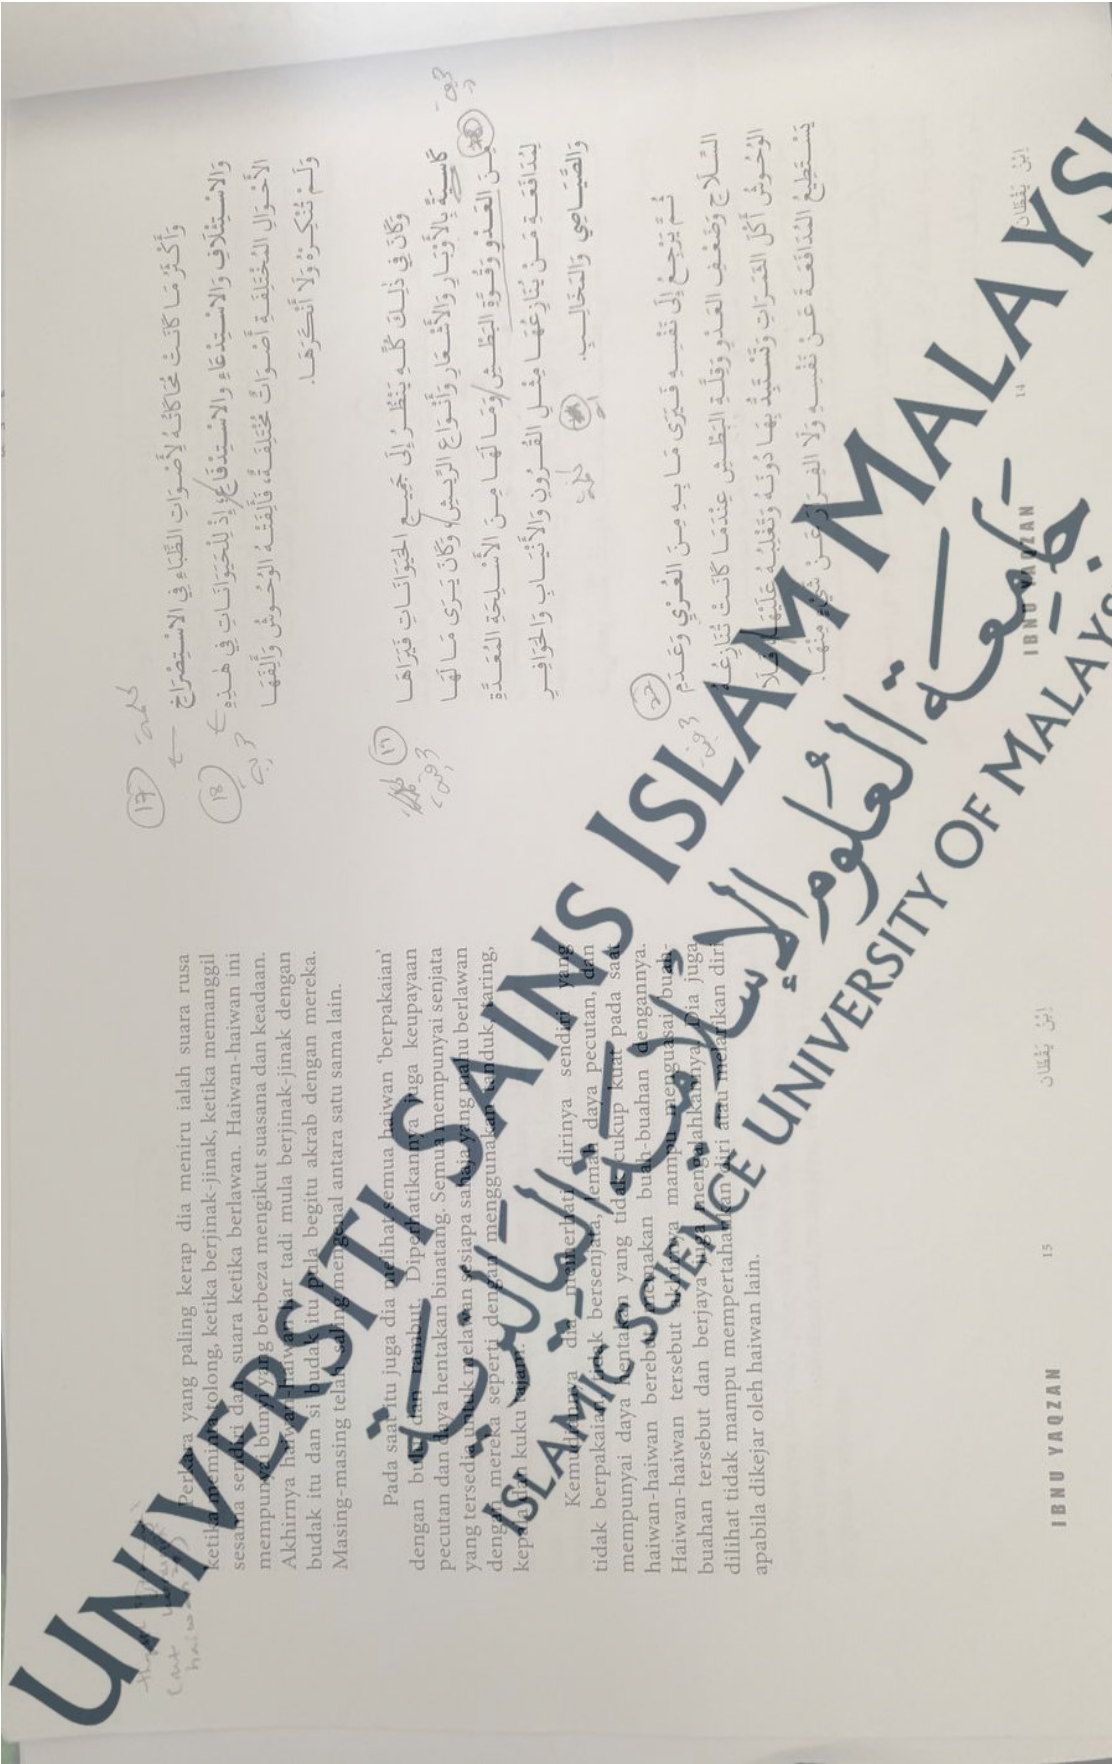 Perkara yang paling kerap dia meniru ialah suara rusa
ketika meminta tolong, ketika berjinak-jinak, ketika memanggil
sesama sendiri dan suara ketika berlawan. Haiwan-haiwan ini
mempunyai bunyi yang berbeza mengikut suasana dan keadaan.
Akhirnya haiwan-haiwan liar tadi mula berjinak-jinak dengan
budak itu dan si budak itu pula begitu akrab dengan mereka.
Masing-masing telah saling mengenal antara satu sama lain.
Pada saat itu juga dia melihat semua haiwan 'berpakaian'
dengan bulu dan rambut. Diperhatikannya juga keupayaan
pecutan dan daya hentakan binatang. Semua mempunyai senjata
yang tersedia untuk melawan sesiapa sahaja yang mahu berlawan
dengan mereka seperti dengan menggunakan tanduk, taring,
kepala dan kuku tajam.
Kemudiannya dia memerhati dirinya sendiri yang
tidak berpakaian, tidak bersenjata, lemah daya pecutan, dan
mempunyai daya hentakan yang tidak cukup kuat pada saat
haiwan-haiwan berebut memakan buah-buahan dengannya.
Haiwan-haiwan tersebut akhirnya mampu menguasai buah-
buahan tersebut dan berjaya juga mengalahkannya. Dia juga
dilihat tidak mampu mempertahankan diri atau melarikan diri
apabila dikejar oleh haiwan lain.
IBNU YAQZAN
15
اِبْنُ يَقْظَان
17
وَأَكْثَرُ مَا كَانَتْ مُحَاكَاتُهُ لِأَصْوَاتِ الظِّبَاءِ فِي الاسْتِصْرَاخِ
18
وَالاسْتِئْلَافِ وَالاسْتِدْعَاءِ وَالاسْتِدْفَاعِ، إِذْ لِلْحَيَوَانَاتِ فِي هَذِهِ
الأَحْوَالِ المُخْتَلِفَةِ أَصْوَاتٌ مُخْتَلِفَةٌ، فَأَلِفَتْهُ الوُحُوشُ وَأَلِفَهَا
وَلَمْ تُنْكِرْهُ وَلَا أَنْكَرَهَا.
وَكَانَ فِي ذَلِكَ كُلِّهِ يَنْظُرُ إِلَى جَمِيعِ الحَيَوَانَاتِ فَيَرَاهَا
كَاسِيَةً بِالأَوْبَارِ وَالأَشْعَارِ وَأَنْوَاعِ الرِّيشِ، وَكَانَ يَرَى مَا لَهَا
مِنَ العَدْوِ وَقُوَّةِ البَطْشِ، وَمَا لَهَا مِنَ الأَسْلِحَةِ المُعَدَّةِ
لِمُدَافَعَةِ مَنْ يُنَازِعُهَا مِثْلِ القُرُونِ وَالأَنْيَابِ وَالحَوَافِرِ
وَالصَّيَاصِي وَالمَخَالِبِ.
ثُمَّ يَرْجِعُ إِلَى نَفْسِهِ فَيَرَى مَا بِهِ مِنَ العُرْيِ وَعَدَمِ
السِّلَاحِ وَضَعْفِ العَدْوِ وَقِلَّةِ البَطْشِ عِنْدَمَا كَانَتْ تُنَازِعُهُ
الوُحُوشُ أَكْلَ الثَّمَرَاتِ وَتَسْتَبِدُّ بِهَا دُونَهُ وَتَغْلِبُهُ عَلَيْهَا، فَلَا
يَسْتَطِيعُ المُدَافَعَةَ عَنْ نَفْسِهِ وَلَا الفِرَارَ عَنْ شَيْءٍ مِنْهَا.
IBNU YAQZAN
14
اِبْنُ يَقْظَان
UNIVERSITI SAINS ISLAM MALAYSI
جامعة العلوم الإسلامية الماليزية
ISLAMIC SCIENCE UNIVERSITY OF MALAYS